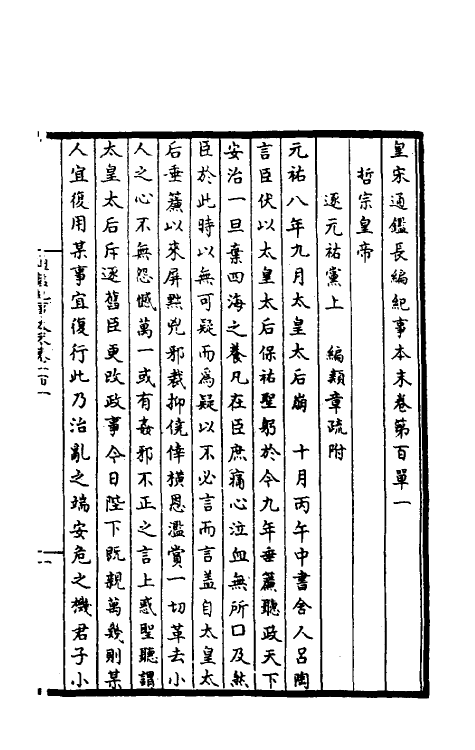 皇宋通鑑長編紀事本末卷第百單一
哲宗皇帝
逐元祐黨上　編類章疏附
元祐八年九月太皇太后崩　十月丙午中書舍人呂陶
言臣伏以太皇太后保祐聖躬於今九年垂簾聽政天下
安治一旦棄四海之養凡在臣庶痛心泣血無所口及然
臣於此時以無可疑而爲疑以不必言而言盖自太皇太
后垂簾以來屏黜兇邪裁抑僥倖橫恩濫賞一切革去小
人之心不無怨憾萬一或有姦邪不正之言上惑聖聽謂
太皇太后斥逐舊臣更改政事今日陛下既親萬幾則某
人宜復用某事宜復行此乃治亂之端安危之機君子小